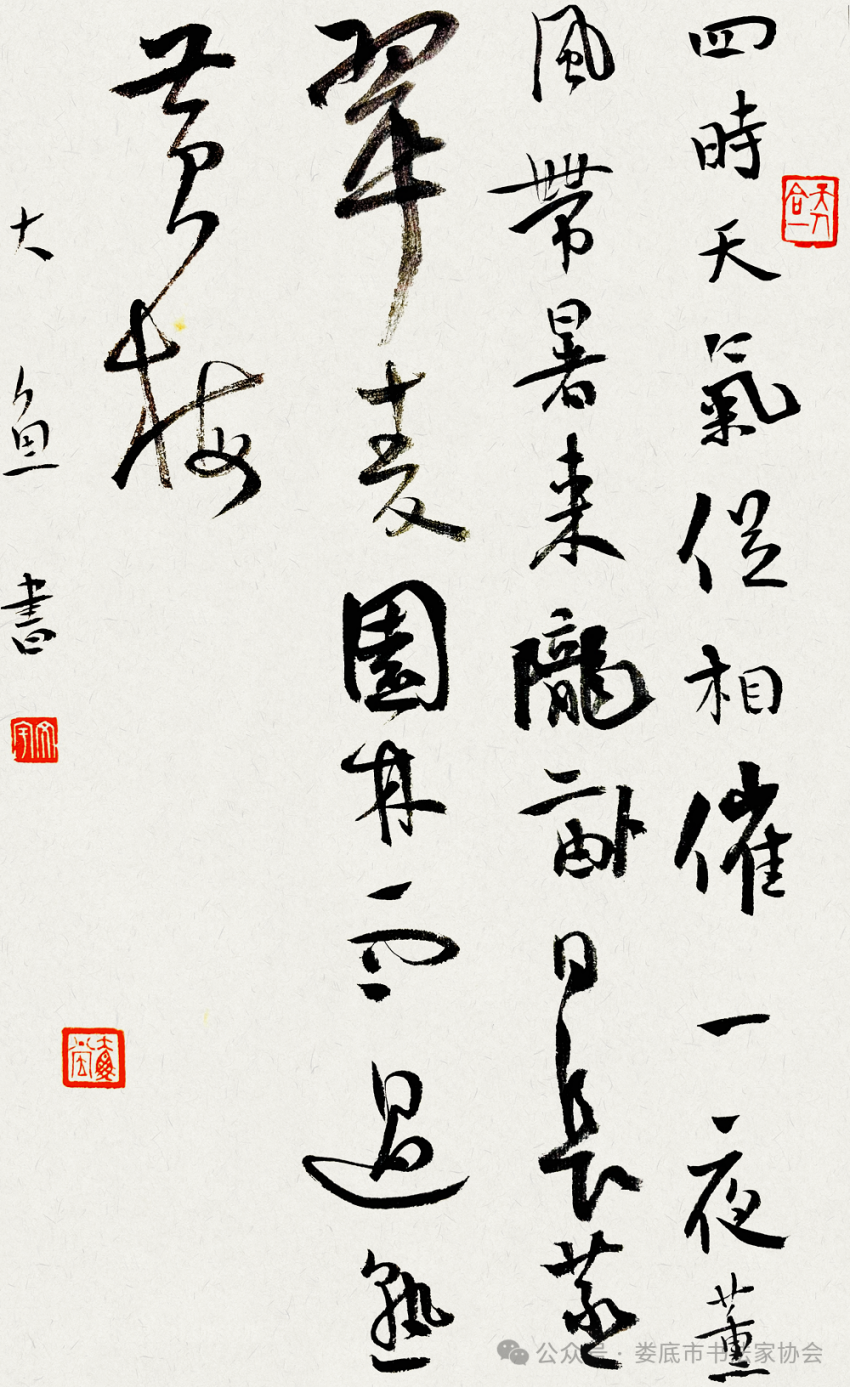 四時天氣促相催一夜薰
風帶暑來隴畝日長蒸
翠麦園林雨過熟
黃梅
大魚書
天人合一
公众号·娄底市书法家协会